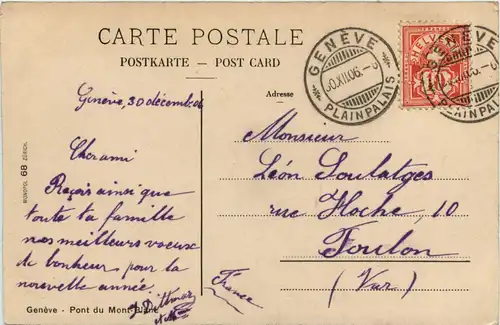 CARTE POSTALE
POSTKARTE — POST CARD
Adresse
GENÈVE
PLAINPALAIS
HELVETIA
10
GENÈVE
PLAINPALAIS
Genève, 30 décembre
Cher ami
Reçois ainsi que
toute ta famille
nos meilleurs voeux
de bonheur pour la
nouvelle année.
J. Dittmar
Monsieur
Léon Soulatges
rue Hoche, 10
Toulon
(Var)
France
MONOPOL 68 ZÜRICH.
Genève - Pont du Mont-Blanc